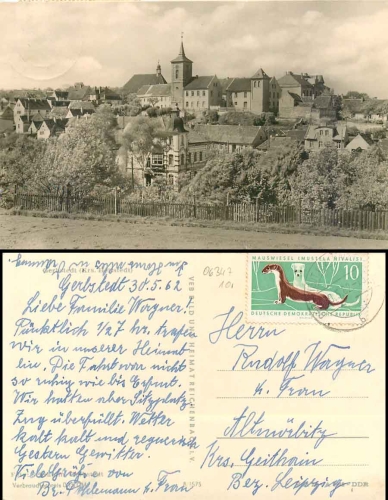 Gerbstedt (Krs. Hettstedt)
Gerbstedt 30.5.62
Liebe Familie Wagner.
Pünktlich 1/2 7 hr. trafen
wir in unserer Heimat
ein. Die Fahrt war nicht
so ruhig wie bis Erfurt.
Wir hatten aber Sitzplatz
Zug überfüllt. Wetter
kalt kalt und regnerisch
Gestern Gewitter.
Viele Grüße von
u. Frau
VEB BILD UND HEIMAT REICHENBACH
06347
MAUSWIESEL (MUSTELA NIVALIS)
10
DEUTSCHE DEMOKRATISCHE REPUBLIK
Herrn
Rudolf Wagner
u. Frau
Altmörbitz
Krs. Geithain
Bez. Leipzig
DDR